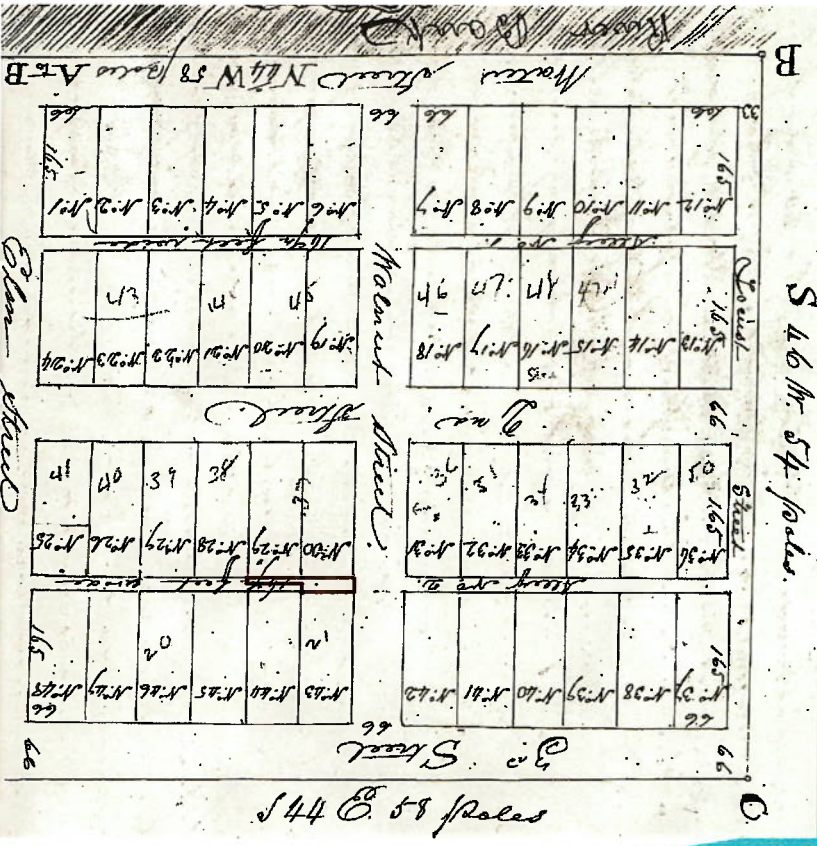 River Bank
B
Water Street N44W 58 poles A to B
66 66 66 66 33
165 165
No 1 No 2 No 3 No 4 No 5 No 6 No 7 No 8 No 9 No 10 No 11 No 12
16½ feet wide Alley No 1.
Elm Street
Walnut Street.
Locust Street
S 46 W. 54 poles.
43 46 47 165
No 24 No 23 No 22 No 21 No 20 No 19 No 18 No 17 No 16 No 15 No 14 No 13
Street. 2nd 66
41 40 39 38 33 32 50 165
No 25 No 26 No 27 No 28 No 29 No 30 No 31 No 32 No 33 No 34 No 35 No 36
16½ feet wide Alley No 2.
165 20 21 165
No 48 No 47 No 46 No 45 No 44 No 43 No 42 No 41 No 40 No 39 No 38 No 37
66 66
66 66 66
3rd Street
S 44 E. 58 poles
C